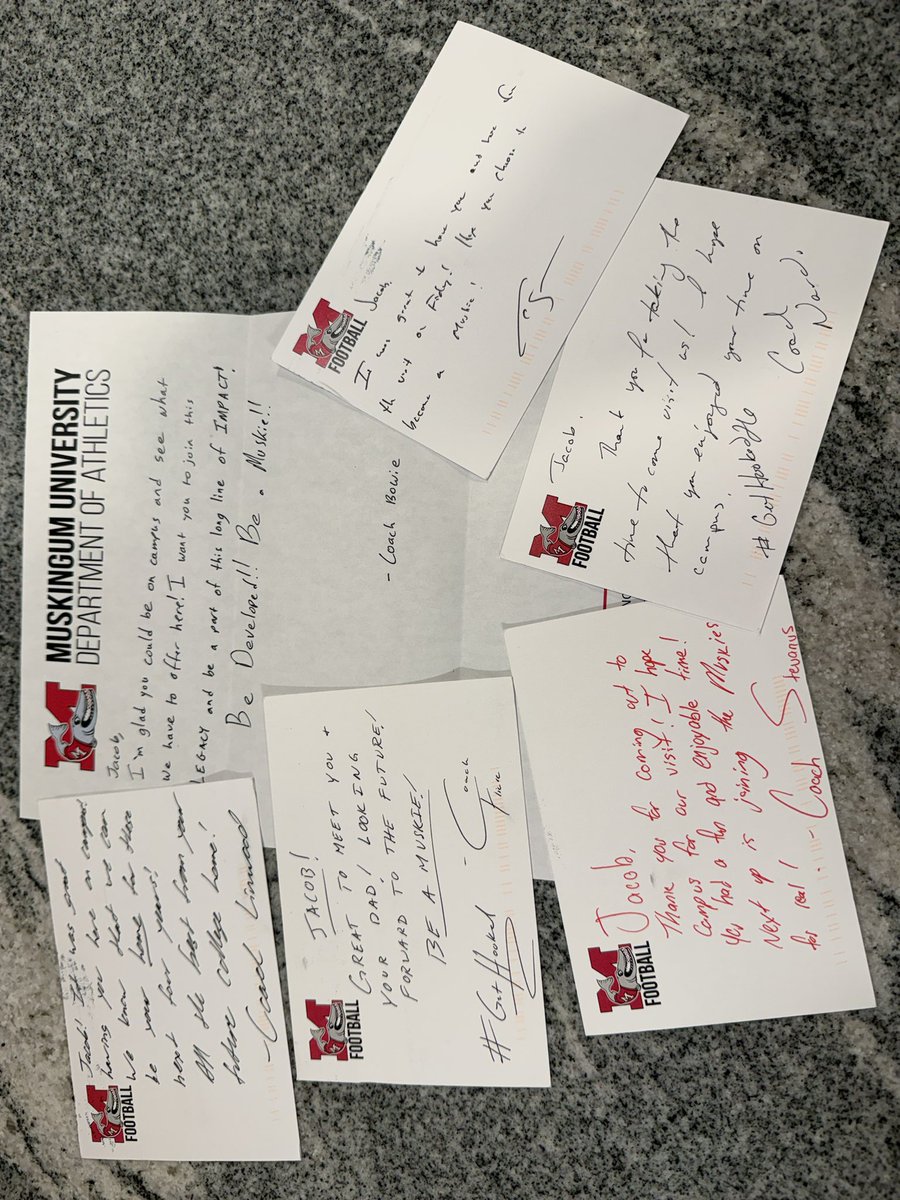 MUSKINGUM UNIVERSITY
DEPARTMENT OF ATHLETICS
Jacob,
I'm glad you could be on campus and see what
we have to offer here! I want you to join this
LEGACY and be a part of this long line of IMPACT!
Be Developed!! Be a Muskie!!
- Coach Bowie
FOOTBALL
Jacob,
It was great to have you and
the visit on Friday! Hope you choose to
become a Muskie!
FOOTBALL
Jacob,
Thank you for taking the
time to come visit us! I hope
that you enjoyed your time on
campus.
Coach
FOOTBALL
Jacob! It was great
having you here on campus!
We know that we can
be your home for these
next four years!
All the best from your
future college home!
- Coach
FOOTBALL
JACOB!
GREAT TO MEET YOU +
YOUR DAD! LOOKING
FORWARD TO THE FUTURE!
BE A MUSKIE!
- Coach
#GotHooked
FOOTBALL
Jacob,
Thank you for coming out to
Campus for our visit! I hope
you had a fun and enjoyable time!
Next up is joining the Muskies
for real! - Coach Stevanus